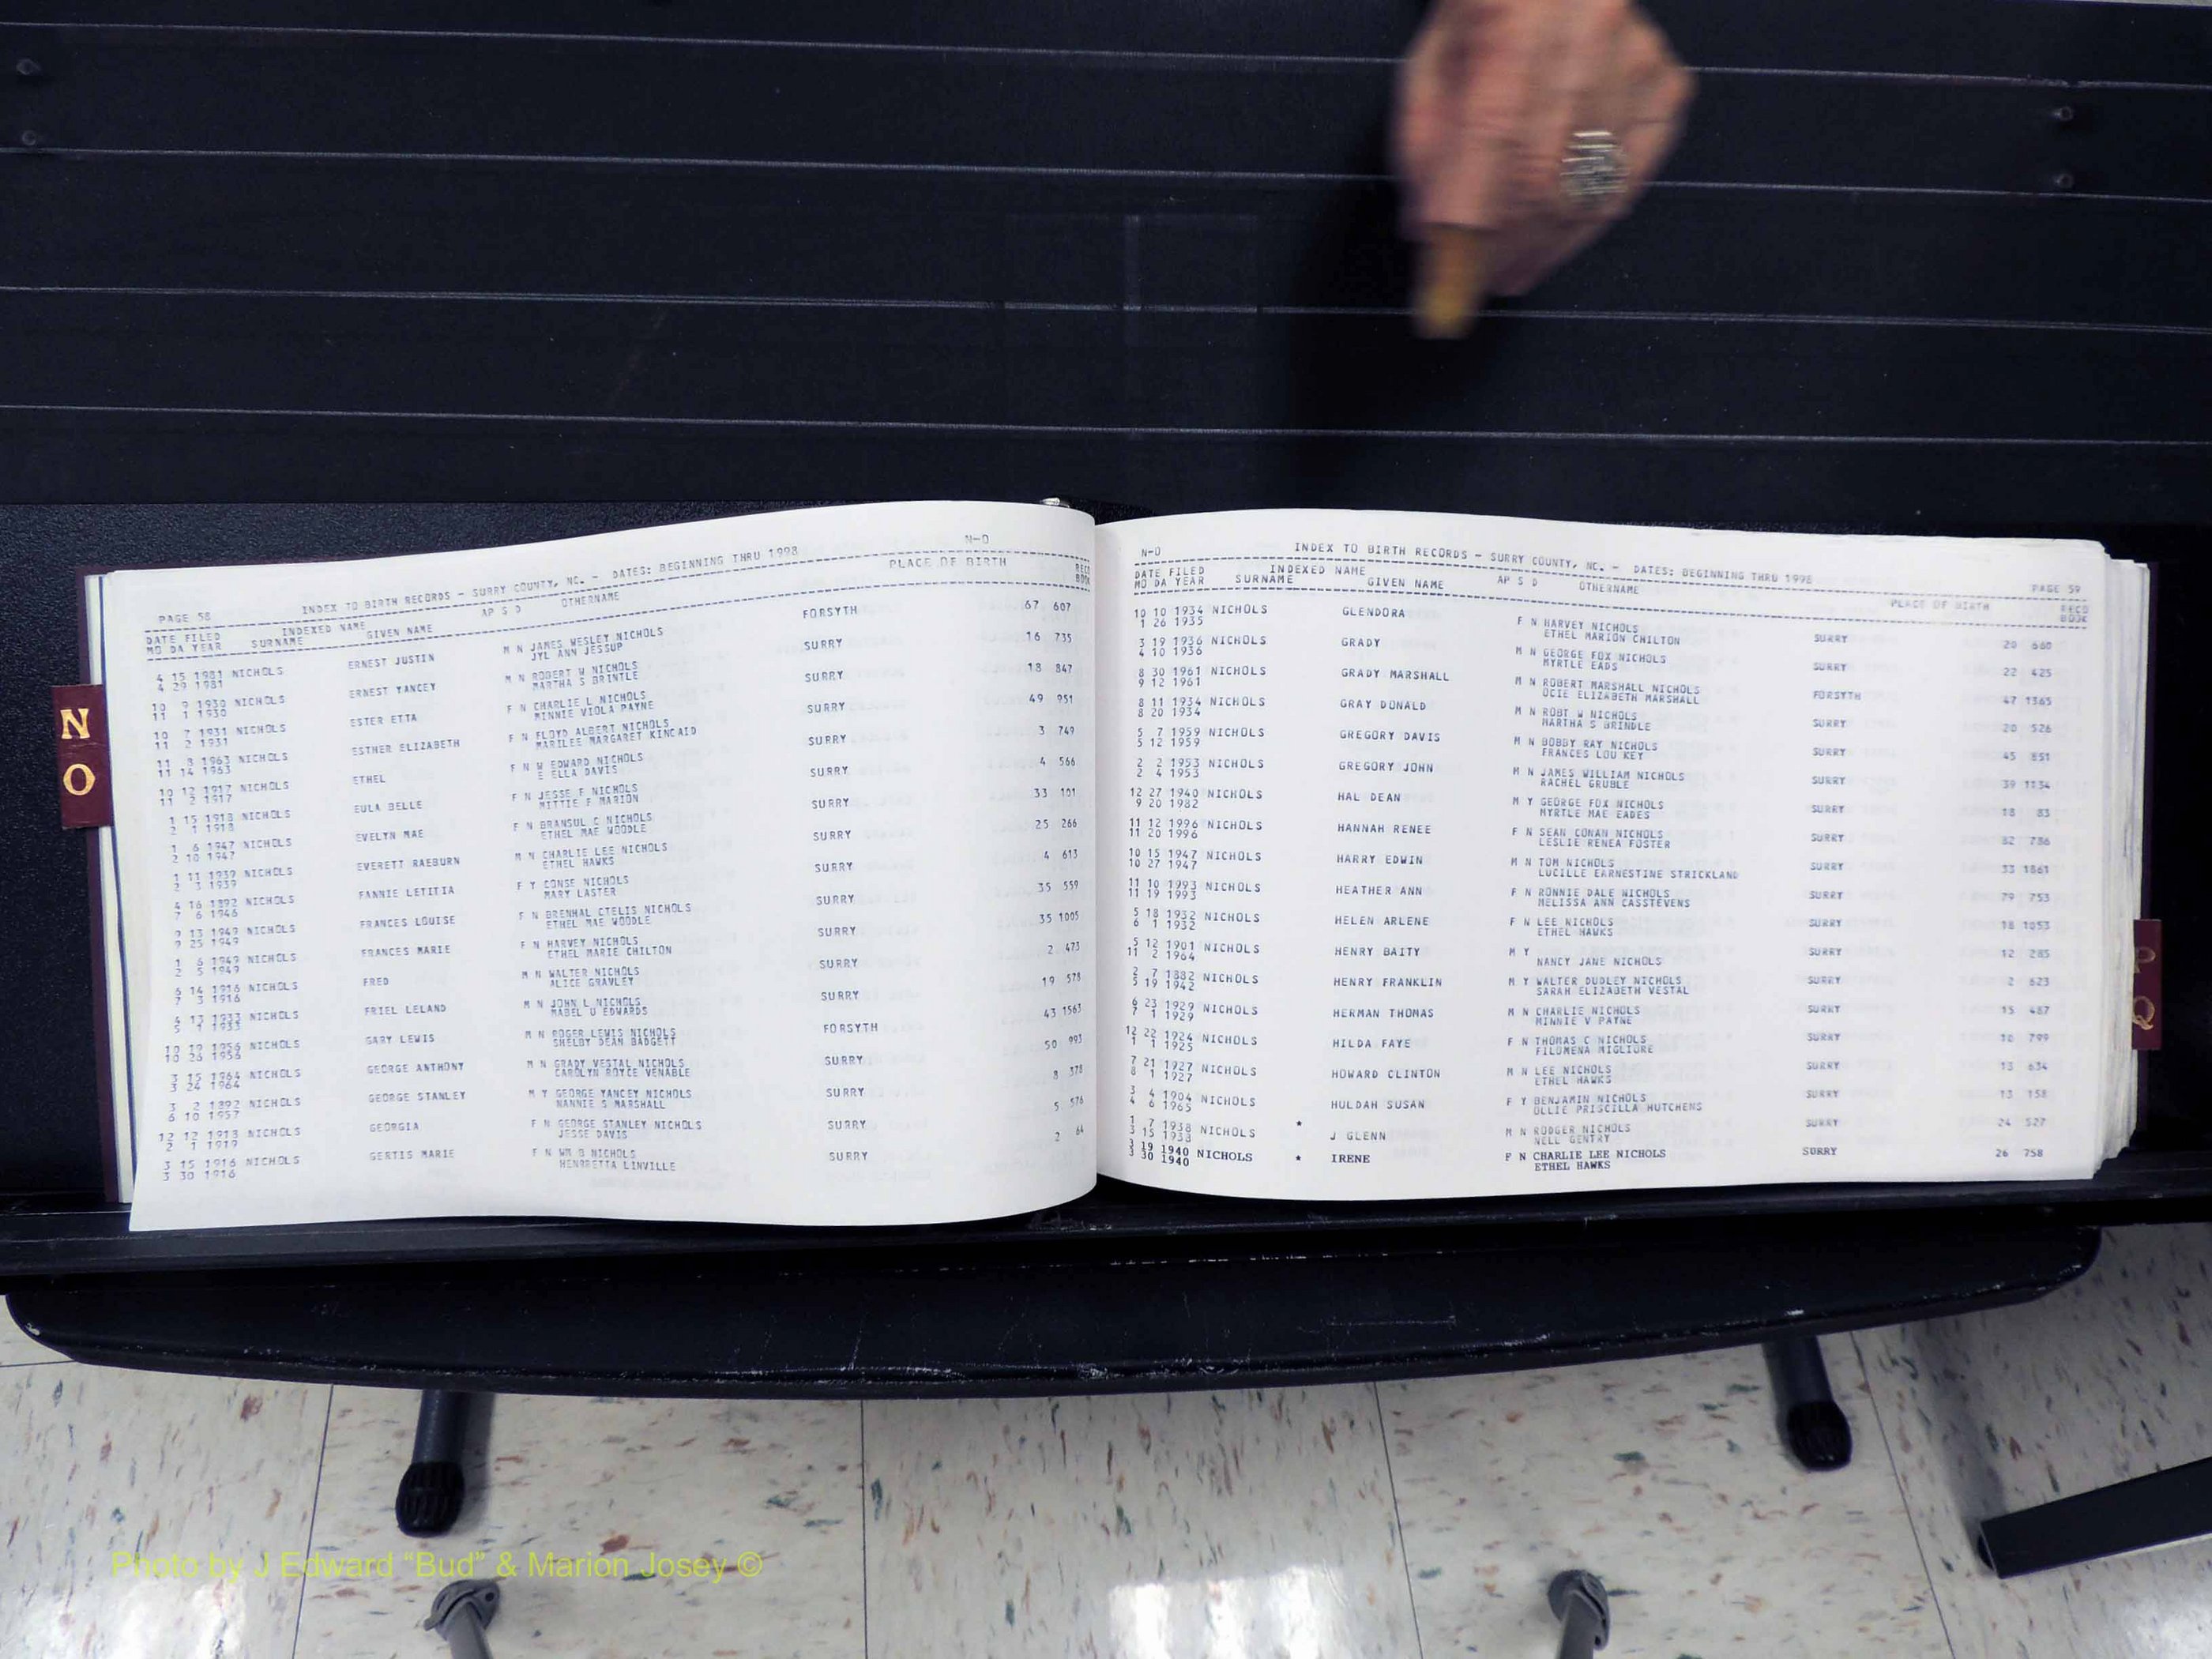 N-O
PAGE 58 INDEX TO BIRTH RECORDS - SURRY COUNTY, NC. - DATES: BEGINNING THRU 1998
DATE FILED INDEXED NAME AP S D OTHERNAME PLACE OF BIRTH RECD
MO DA YEAR SURNAME GIVEN NAME BOOK
4 15 1981 NICHOLS ERNEST JUSTIN M N JAMES WESLEY NICHOLS FORSYTH 67 607
4 29 1981 JYL ANN JESSUP
10 9 1930 NICHOLS ERNEST YANCEY M N ROBERT W NICHOLS SURRY 16 735
11 1 1930 MARTHA S BRINTLE
10 7 1931 NICHOLS ESTER ETTA F N CHARLIE L NICHOLS SURRY 18 847
11 2 1931 MINNIE VIOLA PAYNE
11 8 1963 NICHOLS ESTHER ELIZABETH F N FLOYD ALBERT NICHOLS SURRY 49 951
11 14 1963 MARILEE MARGARET KINCAID
10 12 1917 NICHOLS ETHEL F N W EDWARD NICHOLS SURRY 3 749
11 2 1917 E ELLA DAVIS
1 15 1918 NICHOLS EULA BELLE F N JESSE F NICHOLS SURRY 4 566
2 1 1918 MITTIE F MARION
1 6 1947 NICHOLS EVELYN MAE F N BRANSUL C NICHOLS SURRY 33 101
2 10 1947 ETHEL MAE WOODLE
1 11 1939 NICHOLS EVERETT RAEBURN M N CHARLIE LEE NICHOLS SURRY 25 266
2 3 1939 ETHEL HAWKS
4 16 1892 NICHOLS FANNIE LETITIA F Y CONSE NICHOLS SURRY 4 613
7 6 1946 MARY LASTER
9 13 1949 NICHOLS FRANCES LOUISE F N BRENHAL CTELIS NICHOLS SURRY 35 559
9 25 1949 ETHEL MAE WOODLE
1 6 1949 NICHOLS FRANCES MARIE F N HARVEY NICHOLS SURRY 35 1005
2 5 1949 ETHEL MARIE CHILTON
6 14 1916 NICHOLS FRED M N WALTER NICHOLS SURRY 2 473
7 3 1916 ALICE GRAVLEY
4 13 1933 NICHOLS FRIEL LELAND M N JOHN L NICHOLS SURRY 19 578
5 1 1933 MABEL U EDWARDS
10 19 1956 NICHOLS GARY LEWIS M N ROGER LEWIS NICHOLS FORSYTH 43 1563
10 26 1956 SHELBY DEAN BADGETT
3 15 1964 NICHOLS GEORGE ANTHONY M N GRADY VESTAL NICHOLS SURRY 50 993
3 24 1964 CAROLYN ROYCE VENABLE
3 2 1892 NICHOLS GEORGE STANLEY M Y GEORGE YANCEY NICHOLS SURRY 8 378
6 10 1957 NANNIE S MARSHALL
12 12 1918 NICHOLS GEORGIA F N GEORGE STANLEY NICHOLS SURRY 5 576
2 1 1919 JESSE DAVIS
3 15 1916 NICHOLS GERTIS MARIE F N WM B NICHOLS SURRY 2 64
3 30 1916 HENRRETTA LINVILLE
N-O INDEX TO BIRTH RECORDS - SURRY COUNTY, NC. - DATES: BEGINNING THRU 1998 PAGE 59
DATE FILED INDEXED NAME AP S D OTHERNAME PLACE OF BIRTH RECD
MO DA YEAR SURNAME GIVEN NAME BOOK
10 10 1934 NICHOLS GLENDORA F N HARVEY NICHOLS SURRY 20 680
1 26 1935 ETHEL MARION CHILTON
3 19 1936 NICHOLS GRADY M N GEORGE FOX NICHOLS SURRY 22 425
4 10 1936 MYRTLE EADS
8 30 1961 NICHOLS GRADY MARSHALL M N ROBERT MARSHALL NICHOLS FORSYTH 47 1365
9 12 1961 OCIE ELIZABETH MARSHALL
8 11 1934 NICHOLS GRAY DONALD M N ROBT W NICHOLS SURRY 20 526
8 20 1934 MARTHA S BRINDLE
5 7 1959 NICHOLS GREGORY DAVIS M N BOBBY RAY NICHOLS SURRY 45 851
5 12 1959 FRANCES LOU KEY
2 2 1953 NICHOLS GREGORY JOHN M N JAMES WILLIAM NICHOLS SURRY 39 1134
2 4 1953 RACHEL GRUBLE
12 27 1940 NICHOLS HAL DEAN M Y GEORGE FOX NICHOLS SURRY 18 83
9 20 1982 MYRTLE MAE EADES
11 12 1996 NICHOLS HANNAH RENEE F N SEAN CONAN NICHOLS SURRY 82 786
11 20 1996 LESLIE RENEA FOSTER
10 15 1947 NICHOLS HARRY EDWIN M N TOM NICHOLS SURRY 33 1861
10 27 1947 LUCILLE EARNESTINE STRICKLAND
11 10 1993 NICHOLS HEATHER ANN F N RONNIE DALE NICHOLS SURRY 79 753
11 19 1993 MELISSA ANN CASSTEVENS
5 18 1932 NICHOLS HELEN ARLENE F N LEE NICHOLS SURRY 18 1053
6 1 1932 ETHEL HAWKS
5 12 1901 NICHOLS HENRY BAITY M Y SURRY 12 285
11 2 1964 NANCY JANE NICHOLS
2 7 1882 NICHOLS HENRY FRANKLIN M Y WALTER DUDLEY NICHOLS SURRY 2 623
5 19 1942 SARAH ELIZABETH VESTAL
6 23 1929 NICHOLS HERMAN THOMAS M N CHARLIE NICHOLS SURRY 15 487
7 1 1929 MINNIE V PAYNE
12 22 1924 NICHOLS HILDA FAYE F N THOMAS C NICHOLS SURRY 10 799
1 1 1925 FILOMENA MIGLIORE
7 21 1927 NICHOLS HOWARD CLINTON M N LEE NICHOLS SURRY 13 634
8 1 1927 ETHEL HAWKS
3 4 1904 NICHOLS HULDAH SUSAN F Y BENJAMIN NICHOLS SURRY 13 158
4 6 1965 OLLIE PRISCILLA HUTCHENS
1 7 1938 NICHOLS * J GLENN M N RODGER NICHOLS SURRY 24 527
3 15 1938 NELL GENTRY
3 19 1940 NICHOLS * IRENE F N CHARLIE LEE NICHOLS SURRY 26 758
3 30 1940 ETHEL HAWKS
N
O
P
Q
Photo by J Edward “Bud” & Marion Josey ©